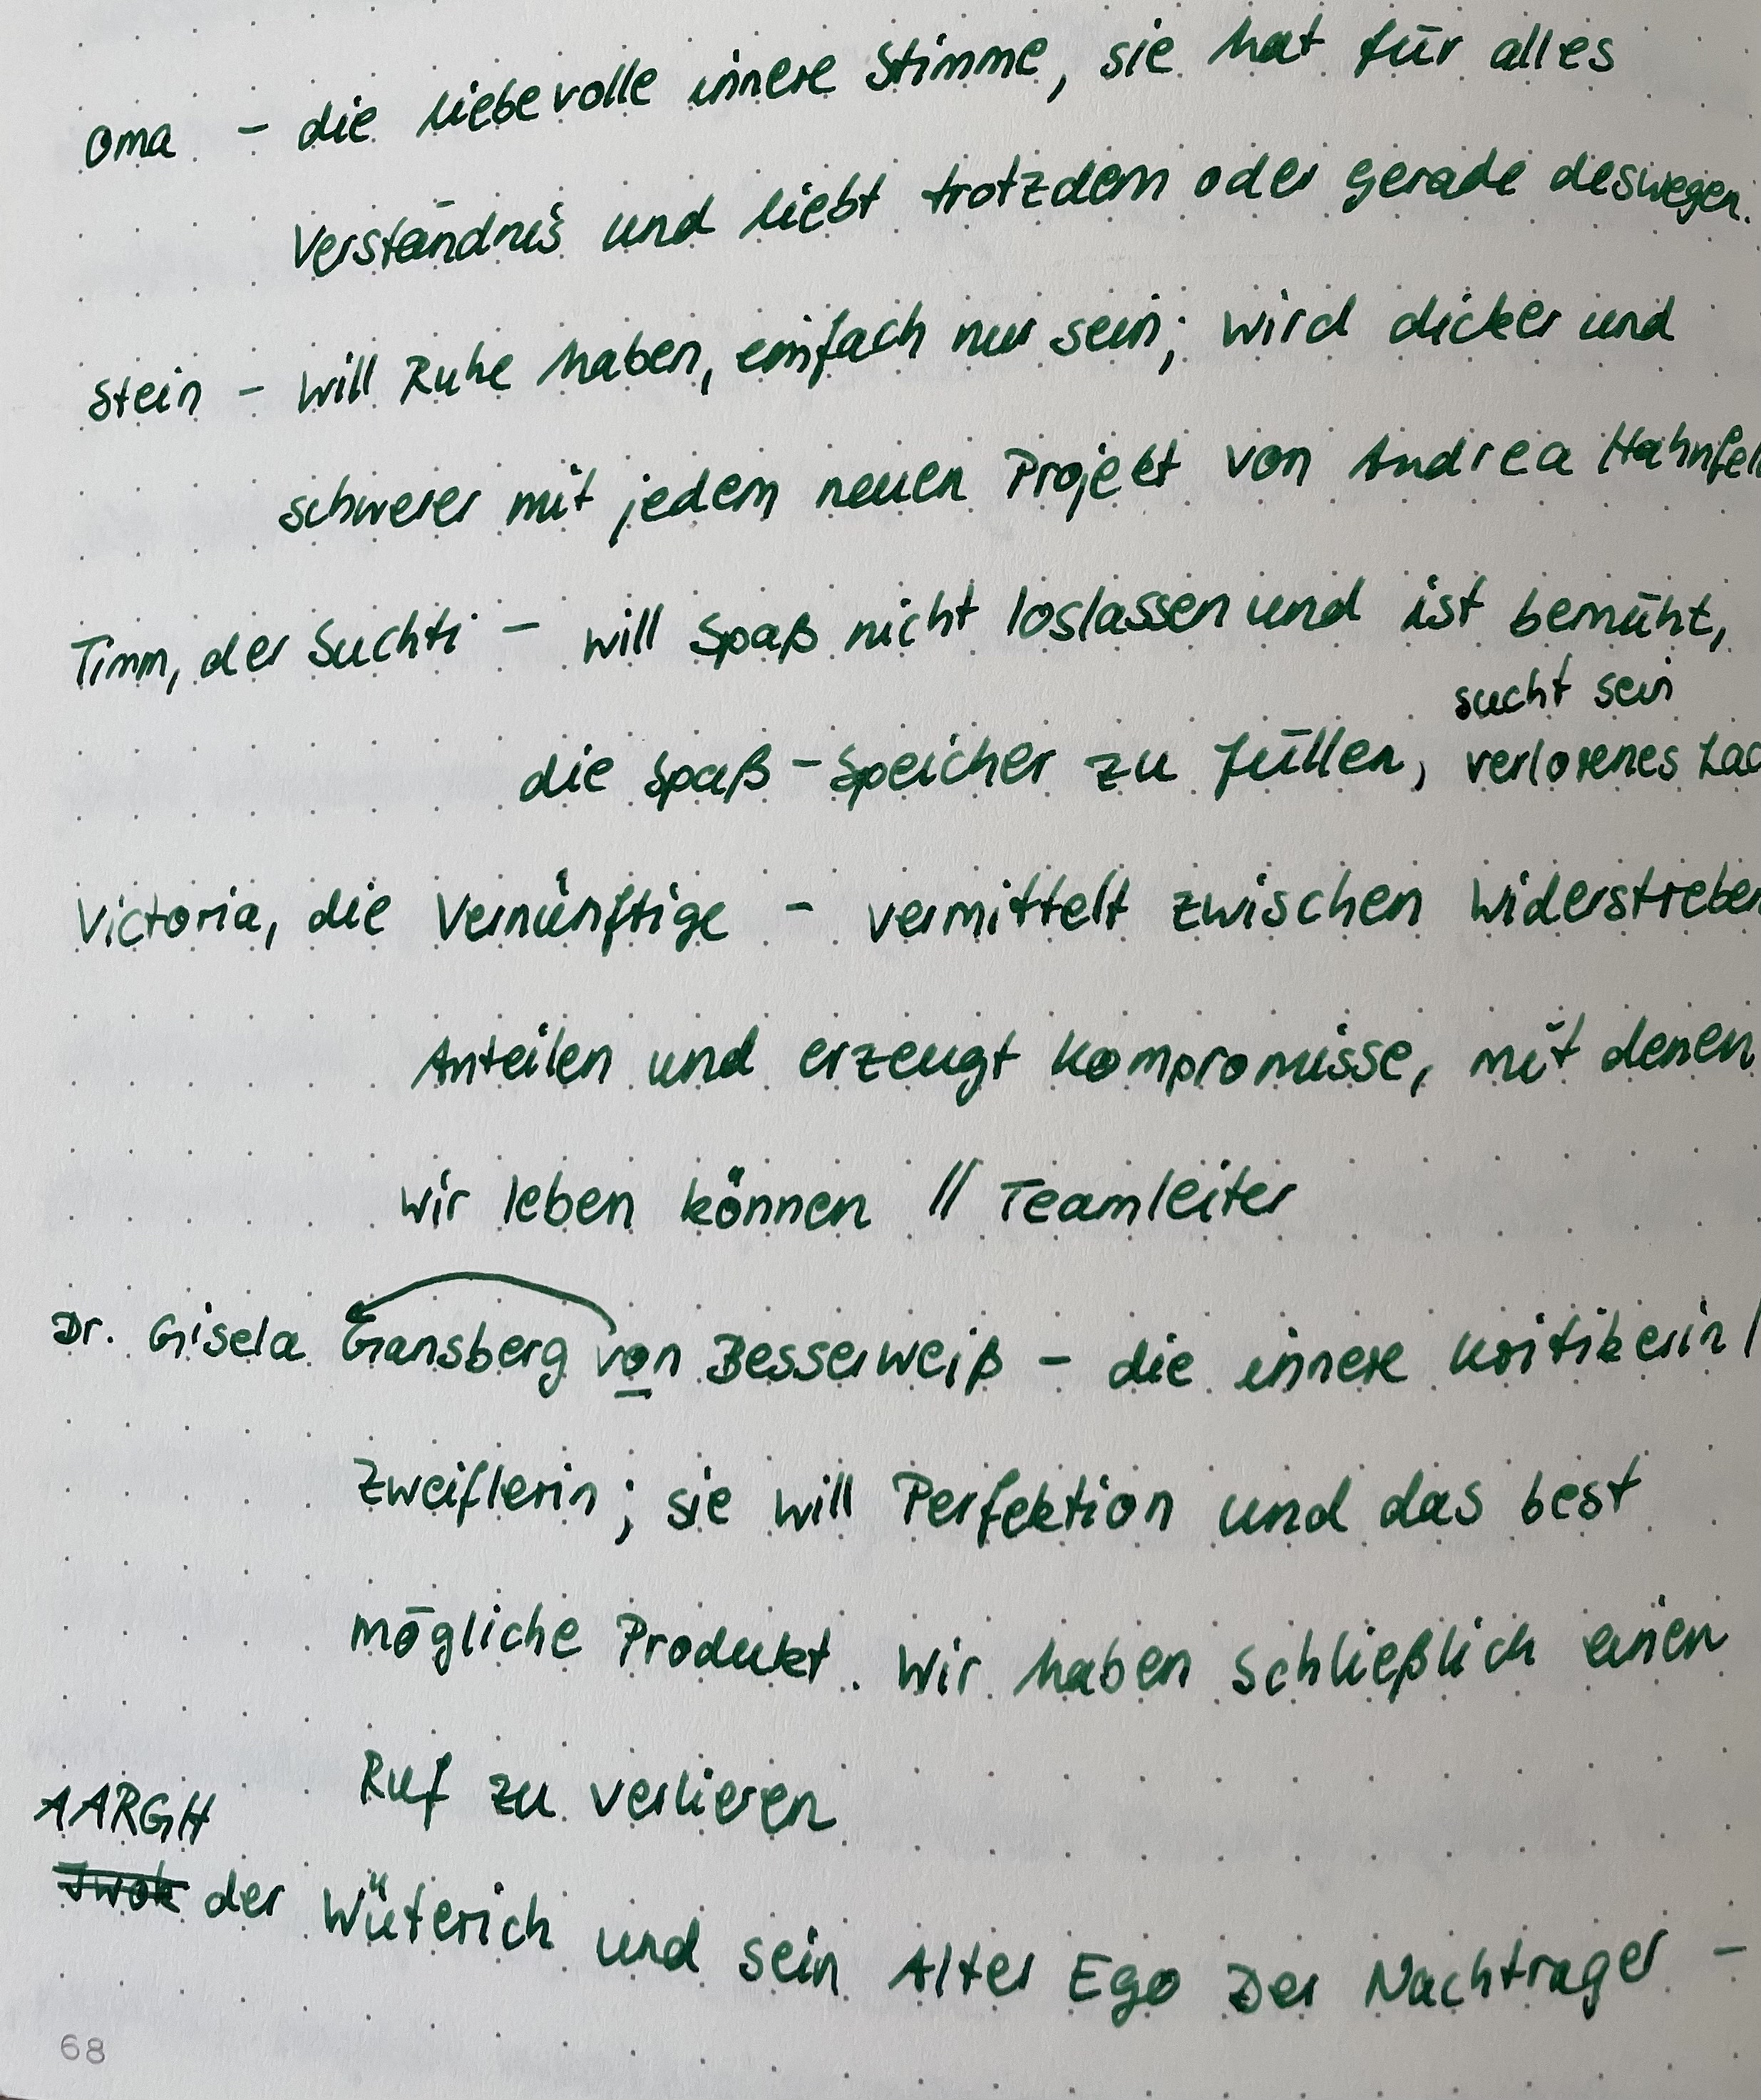 Oma – die liebevolle innere Stimme, sie hat für alles
Verständnis und liebt trotzdem oder gerade deswegen.
Stein – will Ruhe haben, einfach nur sein; wird dicker und
schwerer mit jedem neuen Projekt von Andrea Hahnfel
Timm, der Suchti – will Spaß nicht loslassen und ist bemüht,
sucht sein
die Spaß-Speicher zu füllen, verlorenes Lac
Victoria, die Vernünftige – vermittelt zwischen Widerstreben
Anteilen und erzeugt Kompromisse, mit denen
wir leben können // Teamleiter
Dr. Gisela Gansberg von Besserweiß – die innere Kritikerin /
Zweiflerin; sie will Perfektion und das best
mögliche Produkt. Wir haben schließlich einen
Ruf zu verlieren
AARGH
der Wüterich und sein Alter Ego Der Nachtrager –
68